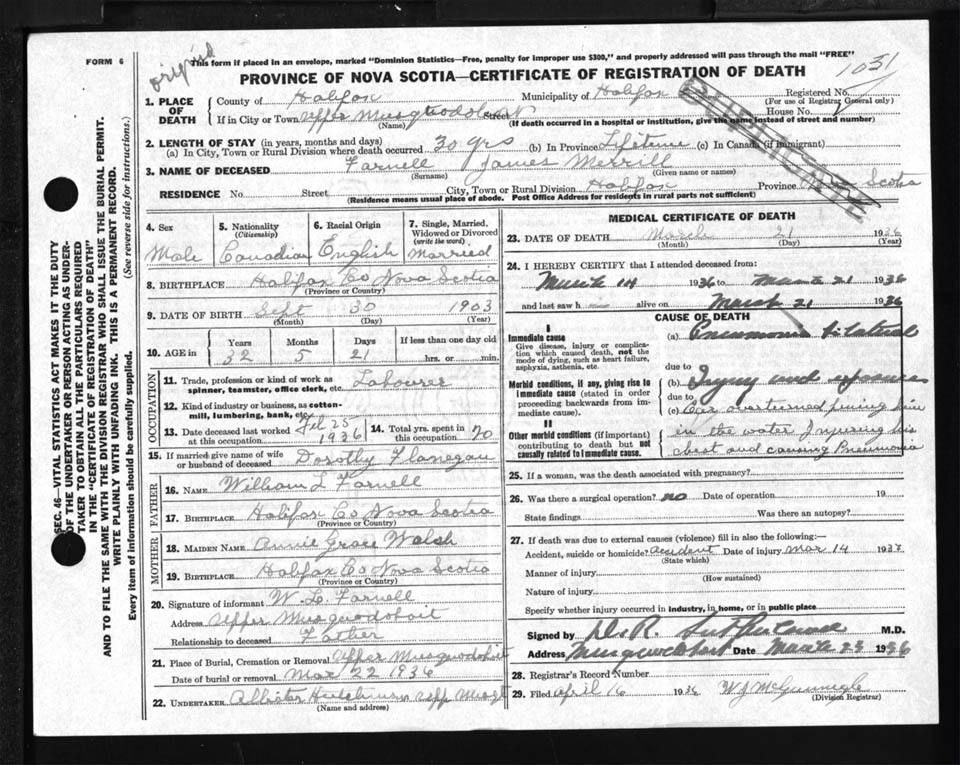 FORM 6
original
This form if placed in an envelope, marked "Dominion Statistics—Free, penalty for improper use $300," and properly addressed will pass through the mail "FREE"
PROVINCE OF NOVA SCOTIA—CERTIFICATE OF REGISTRATION OF DEATH
1031
SEC. 46—VITAL STATISTICS ACT MAKES IT THE DUTY
OF THE UNDERTAKER OR PERSON ACTING AS UNDER-
TAKER TO OBTAIN ALL THE PARTICULARS REQUIRED
IN THE "CERTIFICATE OF REGISTRATION OF DEATH"
AND TO FILE THE SAME WITH THE DIVISION REGISTRAR WHO SHALL ISSUE THE BURIAL PERMIT.
WRITE PLAINLY WITH UNFADING INK. THIS IS A PERMANENT RECORD.
Every item of information should be carefully supplied. (See reverse side for instructions.)
1. PLACE OF DEATH
County of Halifax Municipality of Halifax Registered No.
(For use of Registrar General only)
If in City or Town Upper Musquodoboit Street House No.
(Name) (If death occurred in a hospital or institution, give the name instead of street and number)
2. LENGTH OF STAY (in years, months and days)
(a) In City, Town or Rural Division where death occurred 30 yrs (b) In Province Lifetime (c) In Canada (if immigrant)
3. NAME OF DECEASED Farnell James Merrill
(Surname) (Given name or names)
RESIDENCE No. Street City, Town or Rural Division Halifax Province Nova Scotia
(Residence means usual place of abode. Post Office Address for residents in rural parts not sufficient)
4. Sex
Male
5. Nationality
(Citizenship)
Canadian
6. Racial Origin
English
7. Single, Married, Widowed or Divorced
(write the word)
Married
8. BIRTHPLACE Halifax Co Nova Scotia
(Province or Country)
9. DATE OF BIRTH Sept 30 1903
(Month) (Day) (Year)
10. AGE in Years Months Days If less than one day old
32 5 21 hrs. or min.
OCCUPATION
11. Trade, profession or kind of work as spinner, teamster, office clerk, etc. Labourer
12. Kind of industry or business, as cotton-mill, lumbering, bank, etc.
13. Date deceased last worked at this occupation Feb 25 1936
14. Total yrs. spent in this occupation 20
15. If married give name of wife or husband of deceased Dorothy Flanagan
FATHER
16. NAME William L Farnell
17. BIRTHPLACE Halifax Co Nova Scotia
(Province or Country)
MOTHER
18. MAIDEN NAME Annie Grace Walsh
19. BIRTHPLACE Halifax Co Nova Scotia
(Province or Country)
20. Signature of informant W. L. Farnell
Address Upper Musquodoboit
Relationship to deceased Father
21. Place of Burial, Cremation or Removal Upper Musquodoboit
Date of burial or removal Mar 22 1936
22. UNDERTAKER Allister Hutchinson Upp Musqt
(Name and address)
MEDICAL CERTIFICATE OF DEATH
23. DATE OF DEATH March 21 1936
(Month) (Day) (Year)
24. I HEREBY CERTIFY that I attended deceased from:
March 14 1936 to March 21 1936
and last saw h alive on March 21 1936
CAUSE OF DEATH
I
Immediate cause
Give disease, injury or complication which caused death, not the mode of dying, such as heart failure, asphyxia, asthenia, etc.
(a) Pneumonia bilateral
due to
Morbid conditions, if any, giving rise to immediate cause (stated in order proceeding backwards from immediate cause).
(b) Injury and exposure
due to
(c) Car overturned pining him
in the water Injuring his
chest and causing Pneumonia
II
Other morbid conditions (if important) contributing to death but not causally related to immediate cause.
25. If a woman, was the death associated with pregnancy?
26. Was there a surgical operation? no Date of operation 19
State findings Was there an autopsy?
27. If death was due to external causes (violence) fill in also the following:—
Accident, suicide or homicide? accident Date of injury Mar 14 1937
(State which)
Manner of injury
(How sustained)
Nature of injury
Specify whether injury occurred in industry, in home, or in public place
Signed by D. R. Sutherland M.D.
Address Musquodoboit Date March 23 1936
28. Registrar's Record Number
29. Filed April 16 1936
(Division Registrar)